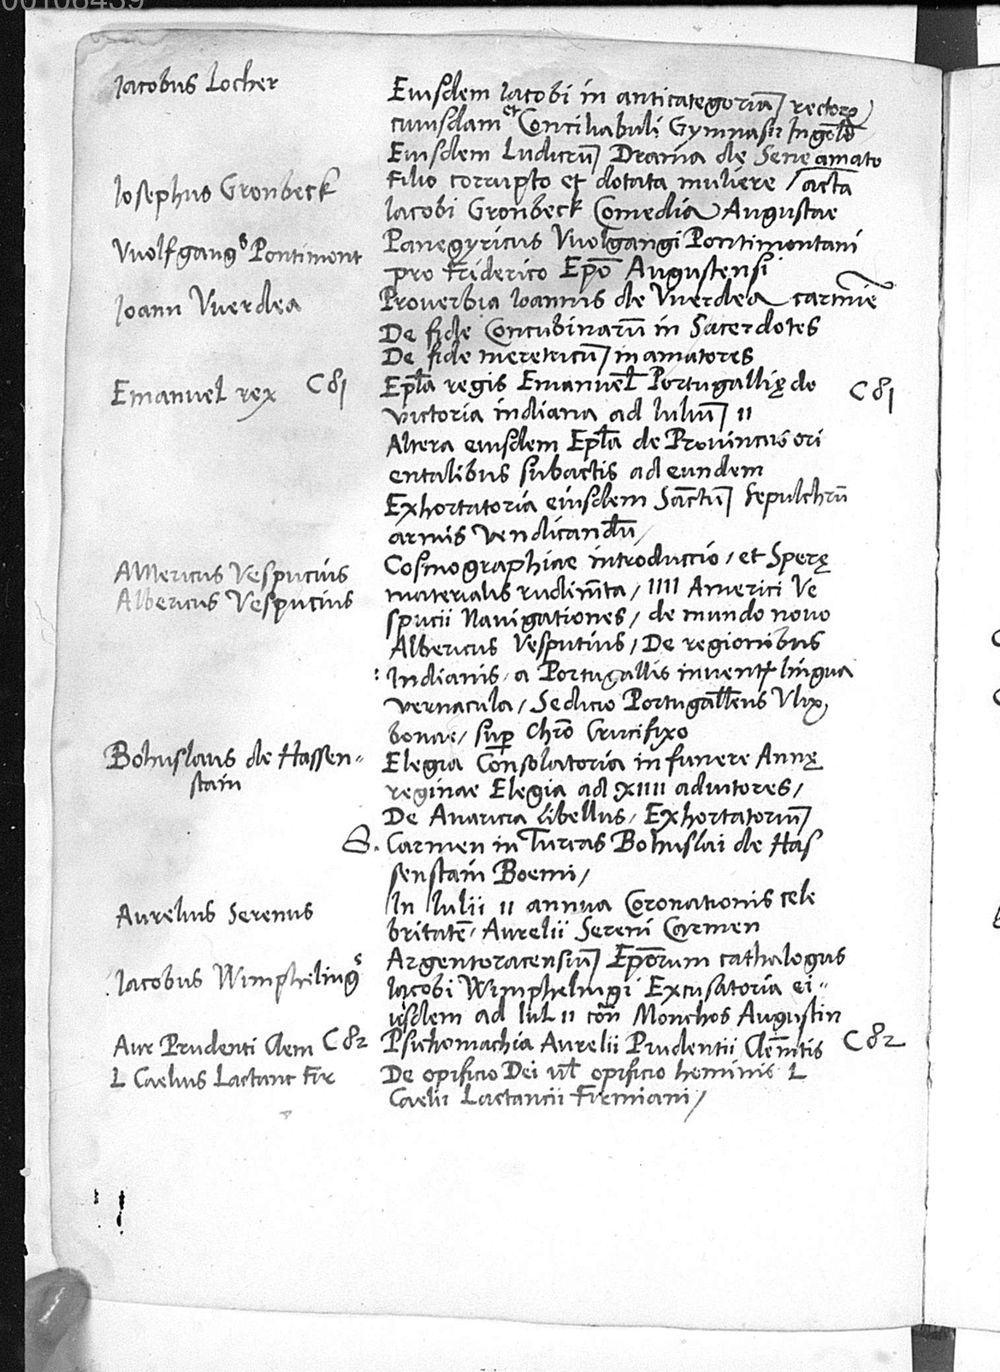 00106439
Iacobus Locher
Eiusdem Iacobi in anticategoriā rectorꝭ
cuiusdam et Conciliabuli Gymnasii Ingolō
Eiusdem Ludicrū Drama de Sene amato
Iosephus Gronbeck
filio corrupto et dotata muliere / acta
Iacobi Gronbeck Comedia Augustae
Vuolfgangꝰ Pontimont
Panegyricus Vuolgangi Pontimontani
pro Friderico Epō Augustensi
Ioann Vuerdea
Proverbia Ioannis de Vuerdea carmīe
De fide Concubinarū in Sacerdotes
De fide meretricū in amatores
Emanuel rex C81
Epła regis Emanuel Portugallię de C81
victoria indiana ad Iuliū 11
Altera eiusdem Epła de Provinciis ori
entalibus subactis ad eundem
Exhortatoria eiusdem Sāctū Sepulchrū
armis vendicandū /
Americus Vespucius
Cosmographiae introductio / et Sperę
Albericus Vesputius
materialis rudimēta / IIII Americi Ve
spucii Navigationes / de mundo novo
Albericus Vesputius / De regionibus
: Indianis / a Portugallis invent lingua
vernacula / Sedicio Portugallēns Vlix
bonae / sup Chrō Crucifixo
Bohuslaus de Hassen-
stain
Elegia Consolatoria in funere Annę
reginae Elegia ad XIIII adiutores /
De Avaricia libellus / Exhortatoriū /
S. Carmen in Turcas Bohuslai de Has
senstain Boemi /
Aurelius Serenus
In Iulii 11 annua Coronationis cele
britatē / Aurelii Sereni Carmen
Argentoracensiū Epōrum cathalogus
Iacobus Wimphelingꝰ
Iacobi Wimphelingi Excusatoria ei-
usdem ad Iul 11 cōn Monchos Augustin
Aur Prudenti Clem C82
Psichomachia Aurelii Prudentii Clemētis C82
L Caelius Lactanc Fir
De opificio Dei vel opificio hominis L
Caelii Lactancii Firmiani /